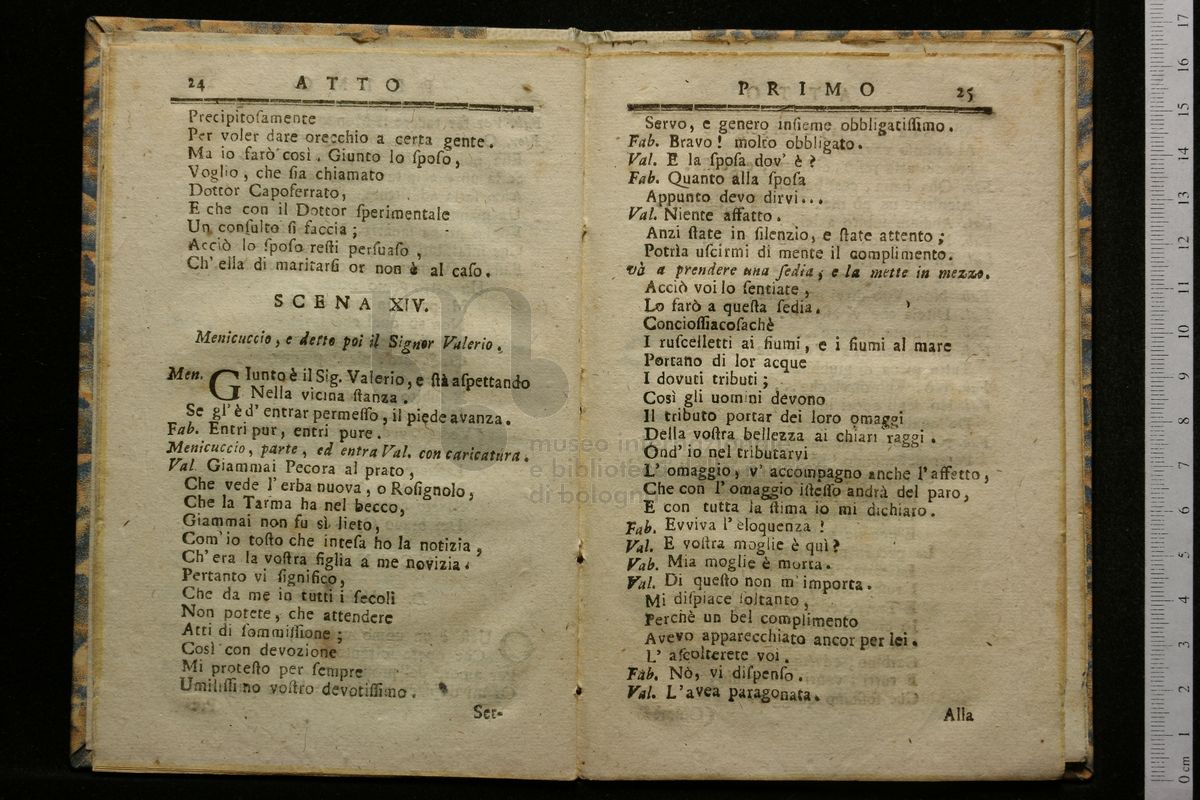 24 ATTO
Precipitoſamente
Per voler dare orecchio a certa gente.
Ma io farò così. Giunto lo ſpoſo,
Voglio, che ſia chiamato
Dottor Capoferrato,
E che con il Dottor ſperimentale
Un conſulto ſi faccia;
Acciò lo ſpoſo reſti perſuaſo,
Ch' ella di maritarſi or non è al caſo.
SCENA XIV.
Menicuccio, e detto poi il Signor Valerio.
Men. GIunto è il Sig. Valerio, e ſtà aſpettando
Nella vicina ſtanza.
Se gl' è d' entrar permeſſo, il piede avanza.
Fab. Entri pur, entri pure.
Menicuccio, parte, ed entra Val. con caricatura.
Val Giammai Pecora al prato,
Che vede l' erba nuova, o Roſignolo,
Che la Tarma ha nel becco,
Giammai non fu sì lieto,
Com' io toſto che inteſa ho la notizia,
Ch' era la voſtra figlia a me novizia.
Pertanto vi ſignifico,
Che da me in tutti i ſecoli
Non potete, che attendere
Atti di ſommiſſione;
Così con devozione
Mi proteſto per ſempre
Umiliſſimo voſtro devotiſſimo.
Ser-
PRIMO 25
Servo, e genero inſieme obbligatiſſimo.
Fab. Bravo! molto obbligato.
Val. E la ſpoſa dov' è?
Fab. Quanto alla ſpoſa
Appunto devo dirvi...
Val. Niente affatto.
Anzi ſtate in ſilenzio, e ſtate attento;
Potrìa uſcirmi di mente il complimento.
và a prendere una ſedia, e la mette in mezzo.
Acciò voi lo ſentiate,
Lo farò a queſta ſedia.
Concioſſiacoſachè
I ruſcelletti ai fiumi, e i fiumi al mare
Portano di lor acque
I dovuti tributi;
Così gli uomini devono
Il tributo portar dei loro omaggi
Della voſtra bellezza ai chiari raggi.
Ond' io nel tributarvi
L' omaggio, v' accompagno anche l' affetto,
Che con l' omaggio iſteſſo andrà del paro,
E con tutta la ſtima io mi dichiaro.
Fab. Evviva l' eloquenza!
Val. E voſtra moglie è quì?
Vab. Mia moglie è morta.
Val. Di queſto non m' importa.
Mi diſpiace ſoltanto,
Perchè un bel complimento
Avevo apparecchiato ancor per lei.
L' aſcolterete voi.
Fab. Nò, vi diſpenſo.
Val. L' avea paragonata.
Alla
museo
e bibliote
di bologn
0 cm 1 2 3 4 5 6 7 8 9 10 11 12 13 14 15 16 17